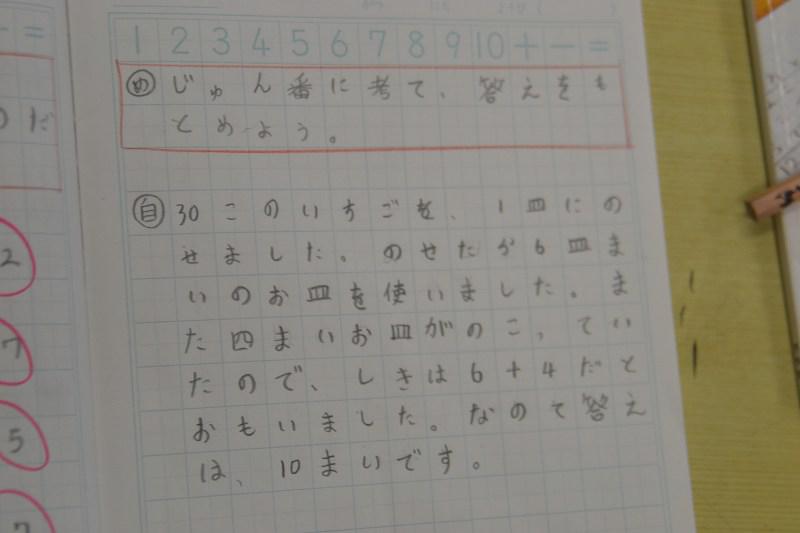 1 2 3 4 5 6 7 8 9 10 + - =
め じゅん番に考て、答えをも
とめよう。
自 30このいちごを、1皿にの
せました。のせたが6皿ま
いのお皿を使いました。ま
た四まいお皿がのこ,てい
たので、しきは6+4だと
おもいました。なのて答え
は、10まいです。
だ
2
7
5